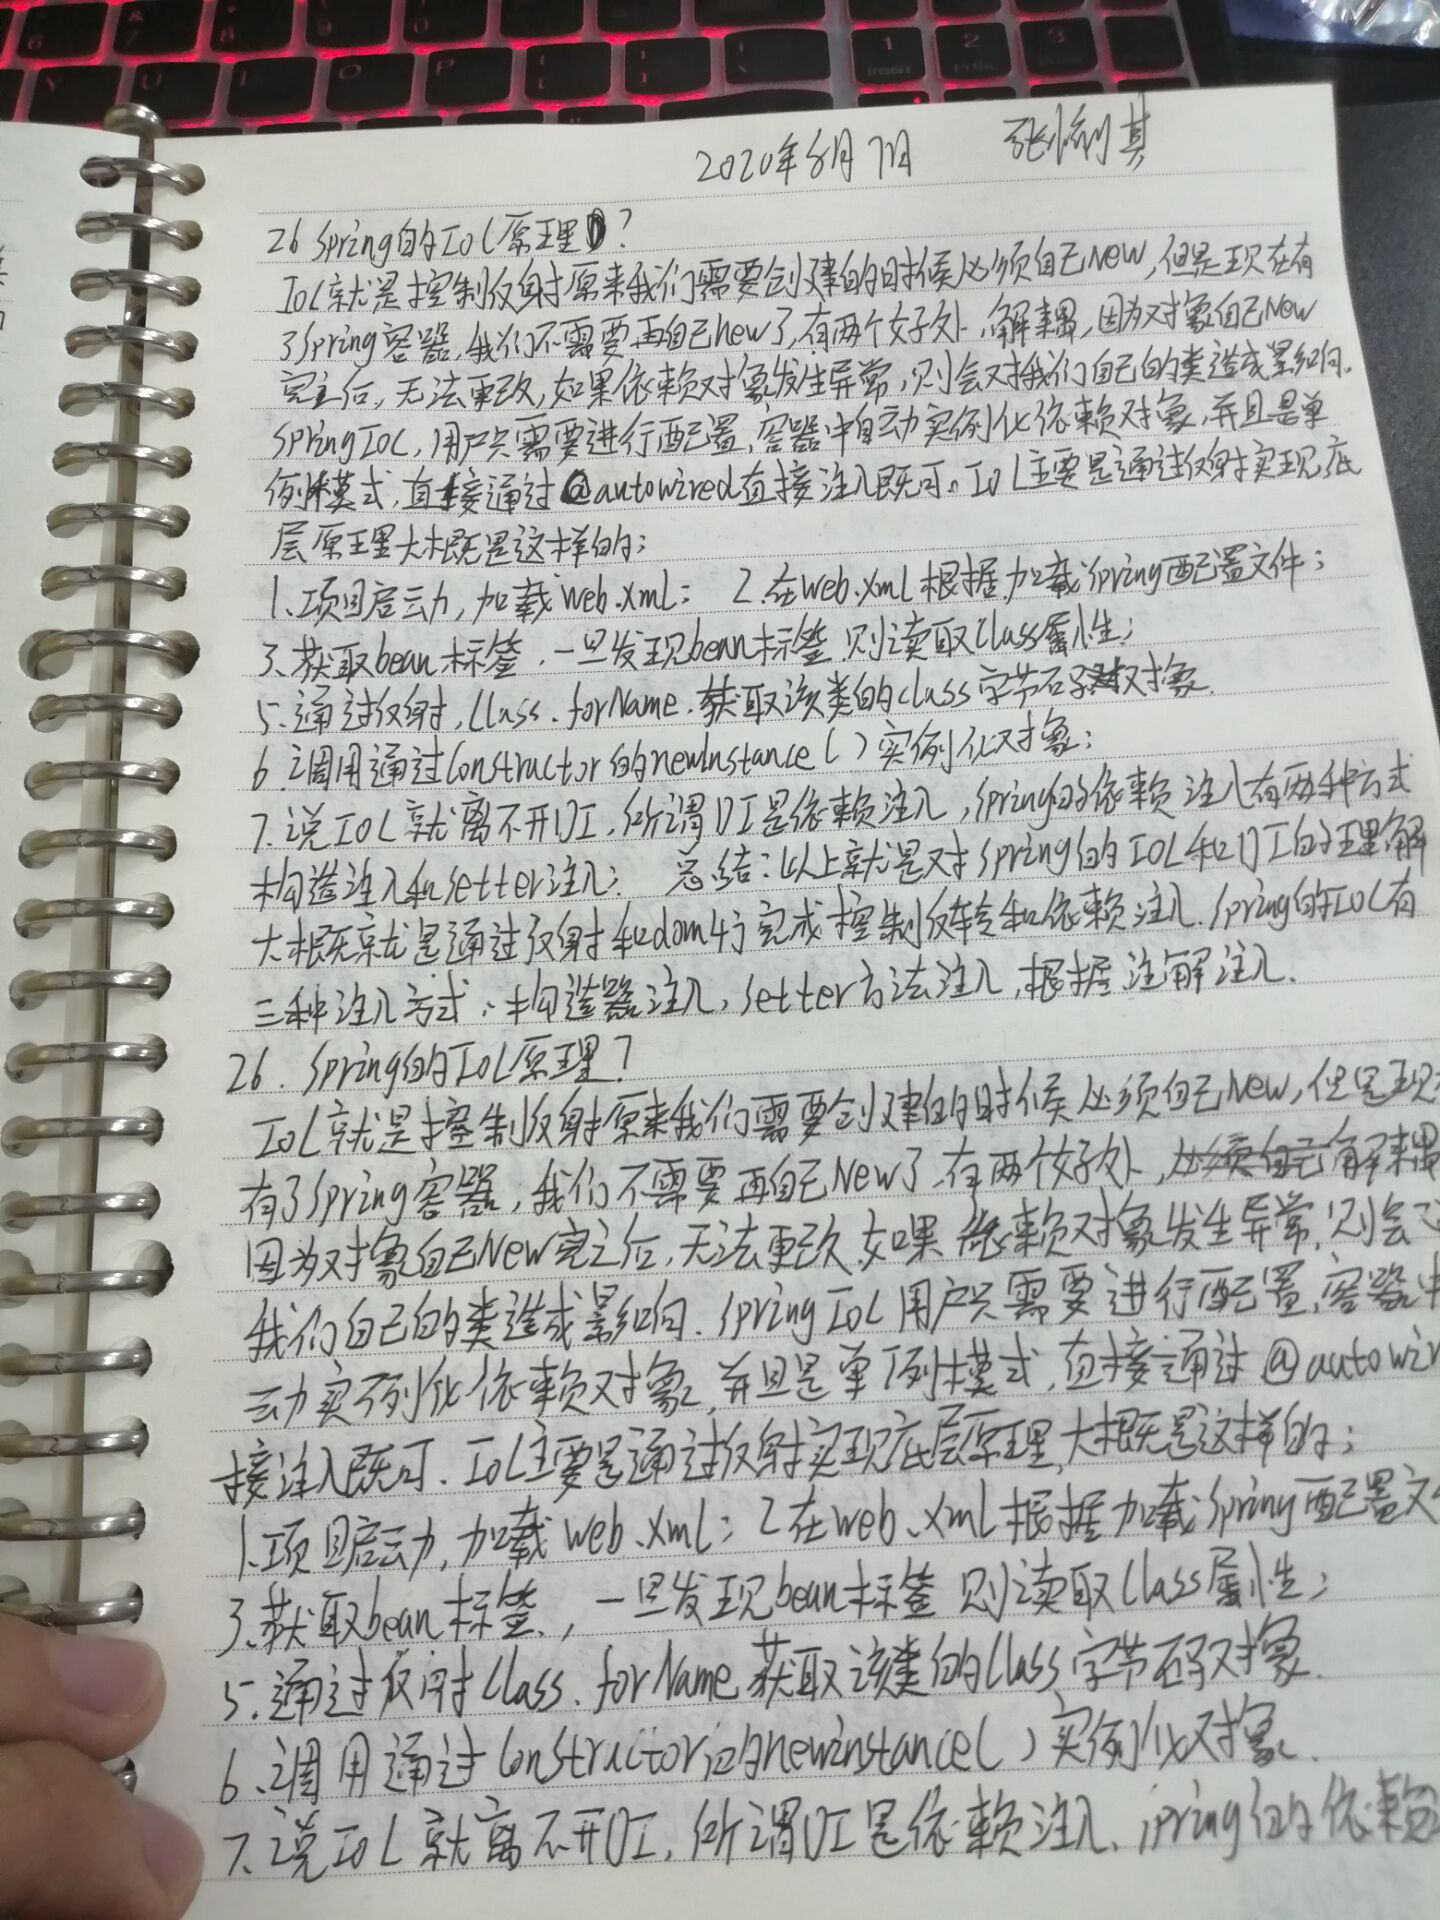 2020年8月7日
26 Spring的IOC原理?
IOC就是控制反射原来我们需要创建的时候必须自己new,但是现在有
了Spring容器,我们不需要再自己new了,有两个好处,解耦,因为对象自己New
完之后,无法更改,如果依赖对象发生异常,则会对我们自己的类造成影响.
Spring IOC,用户只需要进行配置,容器中自动实例化依赖对象,并且是单
例模式,直接通过@autowired直接注入既可。IOC主要是通过反射实现底
层原理大概是这样的;
1.项目启动,加载web.xml; 2.在web.xml根据加载Spring配置文件;
3.获取bean标签,一旦发现bean标签,则读取class属性;
5.通过反射,Class.forName.获取该类的class字节码对象.
6.调用通过Constructor的newInstance()实例化对象;
7.说IOC就离不开DI,所谓DI是依赖注入,Spring的依赖注入有两种方式
构造注入和setter注入; 总结:以上就是对Spring的IOC和DI的理解
大概就是通过反射和dom4j完成控制反转和依赖注入.Spring的IOC有
三种注入方式:构造器注入,setter方法注入,根据注解注入.
26.Spring的IOC原理?
IOC就是控制反射原来我们需要创建的时候必须自己New,但是现
有了Spring容器,我们不需要再自己New了.有两个好处,必须自己解耦
因为对象自己New完之后,无法更改,如果依赖对象发生异常,则会
我们自己的类造成影响.Spring IOC用户只需要进行配置,容器中
动实例化依赖对象,并且是单例模式,直接通过@autowir
接注入既可.IOC主要是通过反射实现底层原理,大概是这样的;
1.项目启动,加载web.xml; 2在web.xml根据加载Spring配置文
3.获取bean标签,一旦发现bean标签则读取class属性;
5.通过反射Class.forName获取该类的Class字节码对象.
6.调用通过Constructor的newinstance()实例化对象.
7.说IOC就离不开DI,所谓DI是依赖注入.Spring的依赖